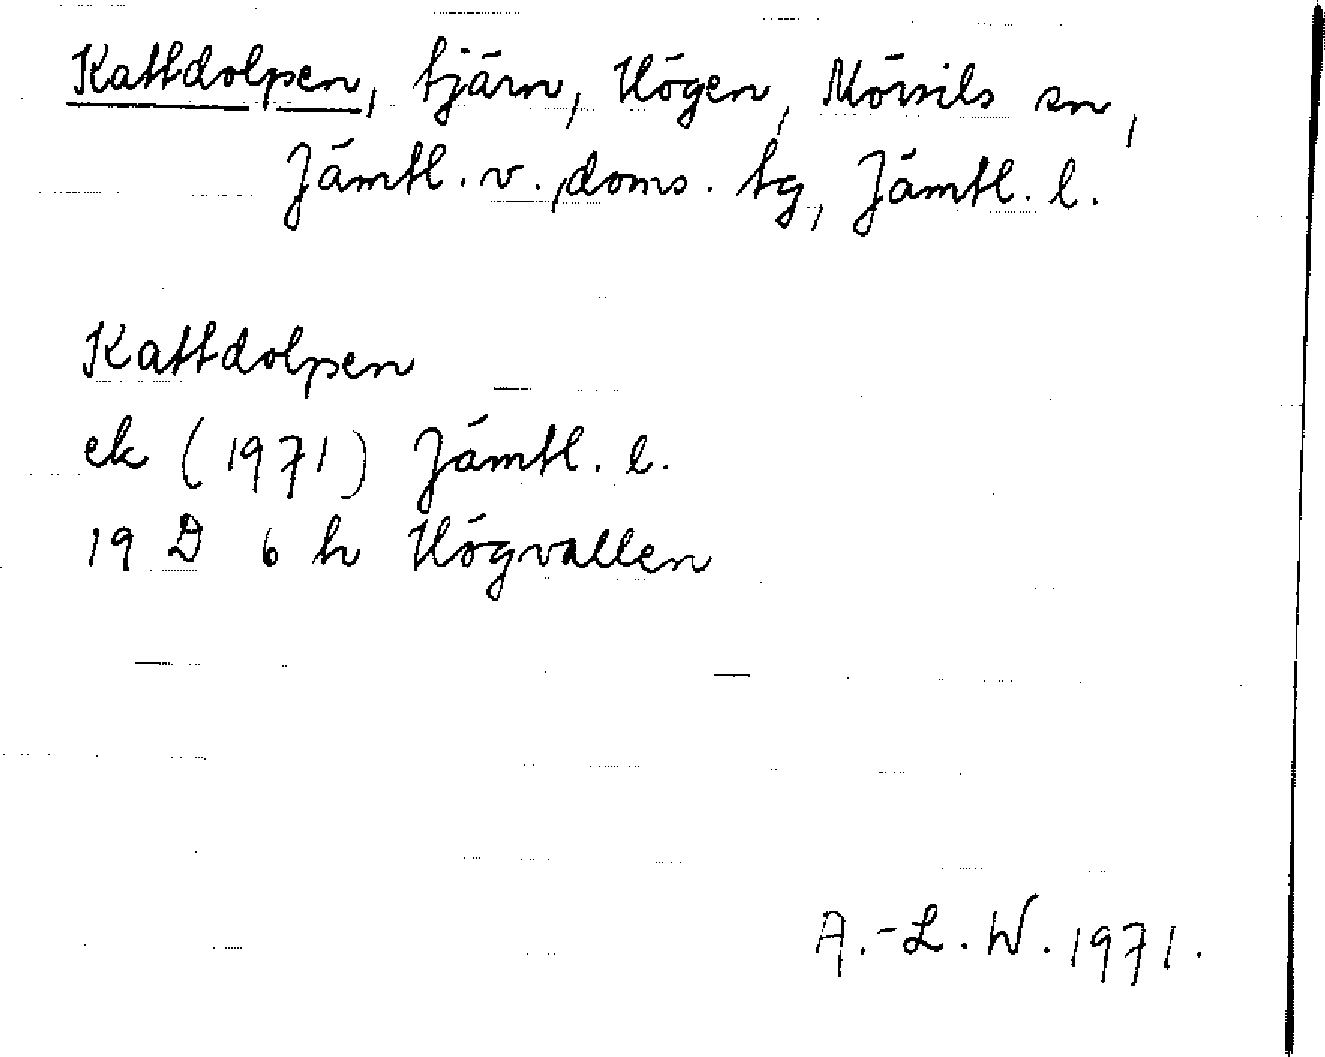 Kattdolpen, tjärn, Högen, Mörsils sn,
Jämtl. v. doms. tg, Jämtl. l.
Kattdolpen
ek (1971) Jämtl. l.
19 D 6 h Högvallen
A.-L. W. 1971.